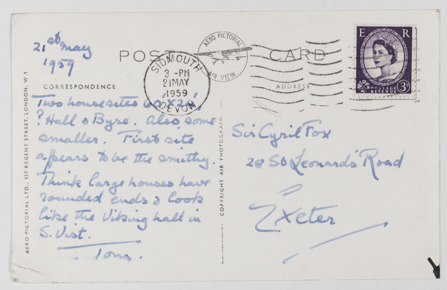 21st May
1959
POST CARD
AERO PICTORIAL
AIR VIEW
SIDMOUTH
3-PM
21 MAY
1959
DEVON
E R
3D
CORRESPONDENCE
ADDRESS
Two house sites
? Hall & Byre. Also some
smaller. First site
appears to be the smithy.
Think large houses have
rounded ends & look
like the Viking hall in
S. Vist.
Tom.
Sir Cyril Fox
28 St Leonards' Road
Exeter
AERO PICTORIAL LTD. 137 REGENT STREET, LONDON, W.1
COPYRIGHT AIR PHOTOGRAPH